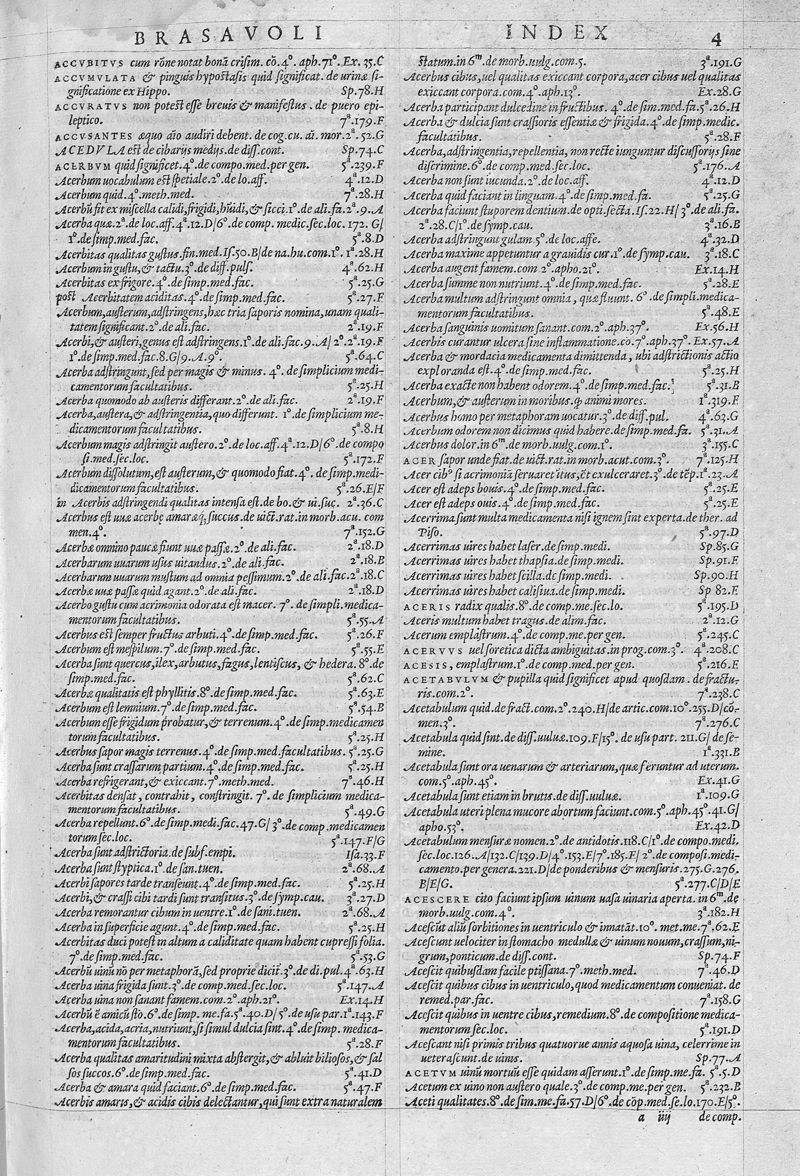 BRASAVOLI
INDEX
4
ACCVBITVS cum rõne notat bonã crisim. cõ.4°. aph.71°. Ex. 35.C
ACCVMVLATA & pinguis hypostasis quid significat. de urinæ si-
gnificatione ex Hippo. Sp.78.H
ACCVRATVS non potest esse breuis & manifestus. de puero epi-
leptico. 7ª.179.F
ACCVSANTES æquo aïo audiri debent. de cog.cu. aï. mor.2ª. 52.G
ACEDVLA est de cibarijs medijs de diss.cont. Sp.74.C
ACERBVM quid significet.4°.de compo.med.per gen. 5ª.239.F
Acerbum uocabulum est spetiale.2°.de lo.aff. 4ª.12.D
Acerbum quid.4°.meth.med. 7ª.28.H
Acerbũ fit ex miscella calidi, frigidi, hũidi, & sicci.1°.de ali.fa.2ª.9.A
Acerba quæ.2ª.de loc.aff.4ª.12.D/6°.de comp. medic.sec.loc. 172.G/
1°.de simp.med.fac. 5ª.8.D
Acerbitas qualitas gustus.fin.med.Is.50.B/de na.hu.com.1°.1ª.28.H
Acerbum in gustu, & tactu.3°.de diff.puls. 4ª.62.H
Acerbitas ex frigore.4°.de simp.med.fac. 5ª.25.G
post Acerbitatem aciditas.4°.de simp.med.fac. 5ª.27.F
Acerbum, austerum, adstringens, hæc tria saporis nomina, unam quali-
tatem significant.2°.de ali.fac. 2ª.19.F
Acerbi, & austeri, genus est adstringens.1°.de ali.fac.9.A/2°.2ª.19.F
1°.de simp.med.fac.8.G/9.A.9°. 5ª.64.C
Acerba adstringunt, sed per magis & minus. 4°. de simplicium medi-
camentorum facultatibus. 5ª.25.H
Acerba quomodo ab austeris differant.2°.de ali.fac. 2ª.19.F
Acerba, austera, & adstringentia, quo differunt. 1°.de simplicium me-
dicamentorum facultatibus. 5ª.8.H
Acerbum magis adstringit austero.2°.de loc.aff.4ª.12.D/6°.de compo
si.med.sec.loc. 5ª.172.F
Acerbum dissolutum, est austerum, & quomodo fiat.4°. de simp.medi-
dicamentorum facultatibus. 5ª.26.E/F
in Acerbis adstringendi qualitas intensa est.de bo.& ui.suc. 2ª.36.C
Acerbus est uuæ acerbę amaræq; succus.de uict.rat.in morb.acu. com
men.4°. 7ª.152.G
Acerbæ omnino paucæ fiunt uuæ passæ.2°.de ali.fac. 2ª.18.D
Acerbarum uuarum usus uitandus.2°.de ali.fac. 2ª.18.B
Acerbarum uuarum mustum ad omnia pessimum.2°.de ali.fac.2ª.18.C
Acerbæ uuæ passæ quid agant.2°.de ali.fac. 2ª.18.D
Acerbo gustu cum acrimonia odorata est macer. 7°. de simpli.medica-
mentorum facultatibus. 5ª.55.A
Acerbus est semper fructus arbuti.4°.de simp.med.fac. 5ª.26.F
Acerbum est mespilum.7°.de simp.med.fac. 5ª.55.E
Acerba sunt quercus, ilex, arbutus, fagus, lentiscus, & hedera. 8°. de
simp.med.fac. 5ª.62.C
Acerbæ qualitatis est phyllitis.8°.de simp.med.fac. 5ª.63.E
Acerbum est lemnium.7°.de simp.med.fac. 5ª.54.B
Acerbum esse frigidum probatur, & terrenum.4°.de simp.medicamen
torum facultatibus. 5ª.25.H
Acerbus sapor magis terrenus.4°.de simp.med.facultatibus.5ª.25.G
Acerba sunt crassarum partium.4°.de simp.med.fac. 5ª.25.H
Acerba refrigerant, & exiccant.7°.meth.med. 7ª.46.H
Acerbitas densat, contrahit, constringit. 7°. de simplicium medica-
mentorum facultatibus. 5ª.49.G
Acerba repellunt.6°.de simp.med.fac.47.G/3°.de comp.medicamen
torum sec.loc. 5ª.147.F/G
Acerba sunt adstrictoria.de subf.empi. Isa.33.F
Acerba sunt styptica.1°.de san.tuen. 2ª.68.A
Acerbi sapores tarde transeunt.4°.de simp.med.fac. 5ª.25.H
Acerbi, & crassi cibi tardi sunt transitus.3°.de symp.cau. 3ª.27.D
Acerba remorantur cibum in uentre.1°.de sani.tuen. 2ª.68.A
Acerba in superficie agunt.4°.de simp.med.fac. 5ª.25.H
Acerbitas duci potest in altum a caliditate quam habent cupressi folia.
7°.de simp.med.fac. 5ª.53.G
Acerbũ uinũ nõ per metaphorã, sed proprie dicit̃.3°.de di.pul.4ª.63.H
Acerba uina frigida sunt.3°.de comp.med.sec.loc. 5ª.147.A
Acerba uina non sanant famem.com.2°.aph.21°. Ex.14.H
Acerbũ ẽ amicũ sto.6°.de simp. me.fa.5ª.40.D/5°.de usu par.1ª.143.F
Acerba, acida, acria, nutriunt, si simul dulcia sint.4°.de simp. medica-
mentorum facultatibus. 5ª.28.F
Acerba qualitas amaritudini mixta abstergit, & abluit biliosos, & sal
sos succos.6°.de simp.med.fac. 5ª.41.D
Acerba & amara quid faciant.6°.de simp.med.fac. 5ª.47.F
Acerbis amaris, & acidis cibis delectantur, qui sunt extra naturalem
statum.in 6m.de morb.uulg.com.5. 3ª.191.G
Acerbus cibus, uel qualitas exiccant corpora, acer cibus uel qualitas
exiccant corpora.com.4°.aph.13°. Ex.28.G
Acerba participant dulcedine in fructibus. 4°.de sim.med.fa.5ª.26.H
Acerba & dulcia sunt crassioris essentiæ & frigida.4°.de simp.medic.
facultatibus. 5ª.28.F
Acerba, adstringentia, repellentia, non recte iunguntur discussorijs sine
discrimine.6°.de comp.med.sec.loc. 5ª.176.A
Acerba non sunt iucunda.2°.de loc.aff. 4ª.12.D
Acerba quid faciant in linguam.4°.de simp.med.fa. 5ª.25.G
Acerba faciunt stuporem dentium.de opti.secta.Is.22.H/3°.de ali.fa.
2ª.28.C/1°.de symp.cau. 3ª.16.B
Acerba adstringunt gulam.5°.de loc.affe. 4ª.32.D
Acerba maxime appetuntur a grauidis cur.1°.de symp.cau. 3ª.18.C
Acerba augent famem.com 2°.apho.21°. Ex.14.H
Acerba summe non nutriunt.4°.de simp.med.fac. 5ª.28.E
Acerba multum adstringunt omnia, quæ fluunt. 6°.de simpli.medica-
mentorum facultatibus. 5ª.48.E
Acerba sanguinis uomitum sanant.com.2°.aph.37°. Ex.56.H
Acerbis curantur ulcera sine inflammatione.cõ.7°.aph.37°.Ex.57.A
Acerba & mordacia medicamenta dimittenda, ubi adstrictionis actio
exploranda est.4°.de simp.med.fac. 5ª.25.H
Acerba exacte non habent odorem.4°.de simp.med.fac. 5ª.31.B
Acerbum, & austerum in moribus.q; animi mores. 1ª.319.E
Acerbus homo per metaphoram uocatur.3°.de diff.pul. 4ª.63.G
Acerbum odorem non dicimus quid habere.de simp.med.fa. 5ª.31.A
Acerbus dolor.in 6m.de morb.uulg.com.1°. 3ª.155.C
ACER sapor unde fiat.de uict.rat.in morb.acut.com.3°. 7ª.125.H
Acer cib9 si acrimonia seruaret itus, et exulceraret.3°.de tẽp.1ª.23.A
Acer est adeps bouis.4°.de simp.med.fac. 5ª.25.E
Acer est adeps ouis.4°.de simp.med.fac. 5ª.25.E
Acerrima sunt multa medicamenta nisi ignem sint experta.de ther. ad
Piso. 5ª.97.D
Acerrimas uires habet laser.de simp.medi. Sp.85.G
Acerrimas uires habet thapsia.de simp.medi. Sp.91.F
Acerrimas uires habet scilla.de simp.medi. Sp.90.H
Acerrimas uires habet calisiua.de simp.medi. Sp 82.E
ACERIS radix qualis.8°.de comp.me.sec.lo. 5ª.195.D
Aceris multum habet tragus.de alim.fac. 2ª.12.G
Acerum emplãstrum.4°.de comp.me.per gen. 5ª.245.C
ACERVVS uel soretica dicta ambiguitas.in prog.com.3°. 4ª.208.C
ACESIS, emplastrum.1°.de comp.med.per gen. 5ª.216.E
ACETABVLVM & pupilla quid significet apud quosdam.de fractu-
ris.com.2°. 7ª.238.C
Acetabulum quid.de fract.com.2°.240.H/de artic.com.10°.255.D/cõ-
men.3°. 7ª.276.C
Acetabula quid sint.de diss.uuluæ.109.F/15°. de usu part. 211.G/de se-
mine. 1ª.331.B
Acetabula sunt ora uenarum & arteriarum, quæ feruntur ad uterum.
com.5°.aph.45°. Ex.41.G
Acetabula sunt etiam in brutus.de diss.uuluæ. 1ª.109.G
Acetabula uteri plena mucore abortum faciunt.com.5°.aph.45°.41.G/
apho.53°. Ex.42.D
Acetabulum mensuræ nomen.2°.de antidotis.118.C/1°.de compo.medi.
sec.loc.126.A/132.C/139.D/4°.153.E/7°.185.F/2°.de composi.medi-
camento.per genera.221.D/de ponderibus & mensuris.275.G.276.
B/E/G. 5ª.277.C/D/E
ACESCERE cito faciunt ipsum uinum uasa uinaria aperta.in 6m.de
morb.uulg.com.4°. 3ª.182.H
Acescũt alij sorbitiones in uentriculo & innatãt.10°. met.me.7ª.62.E
Acescunt uelociter in stomacho medullæ & uinum nouum, crassum, ni-
grum, ponticum.de diss.cont. Sp.74.F
Acescit quibusdam facile ptissana.7°.meth.med. 7ª.46.D
Acescit quibus cibus in uentriculo, quod medicamentum conueniat.de
remed.par.fac. 7ª.158.G
Acescit quibus in uentre cibus, remedium.8°.de compositione medica-
mentorum sec.loc. 5ª.191.D
Acescant nisi primis tribus quatuorue annis aquosa uina, celerrime in
ueterascunt.de uinis. Sp.77.A
ACETVM uinũ mortuũ esse quidam asserunt.1°.de simp.me.fa. 5ª.5.D
Acetum ex uino non austero quale.3°.de comp.me.per gen. 5ª.232.B
Aceti qualitates.8°.de sim.me.fa.57.D/6°.de cõp.med.se.lo.170.E/5°.
a iiij de comp.